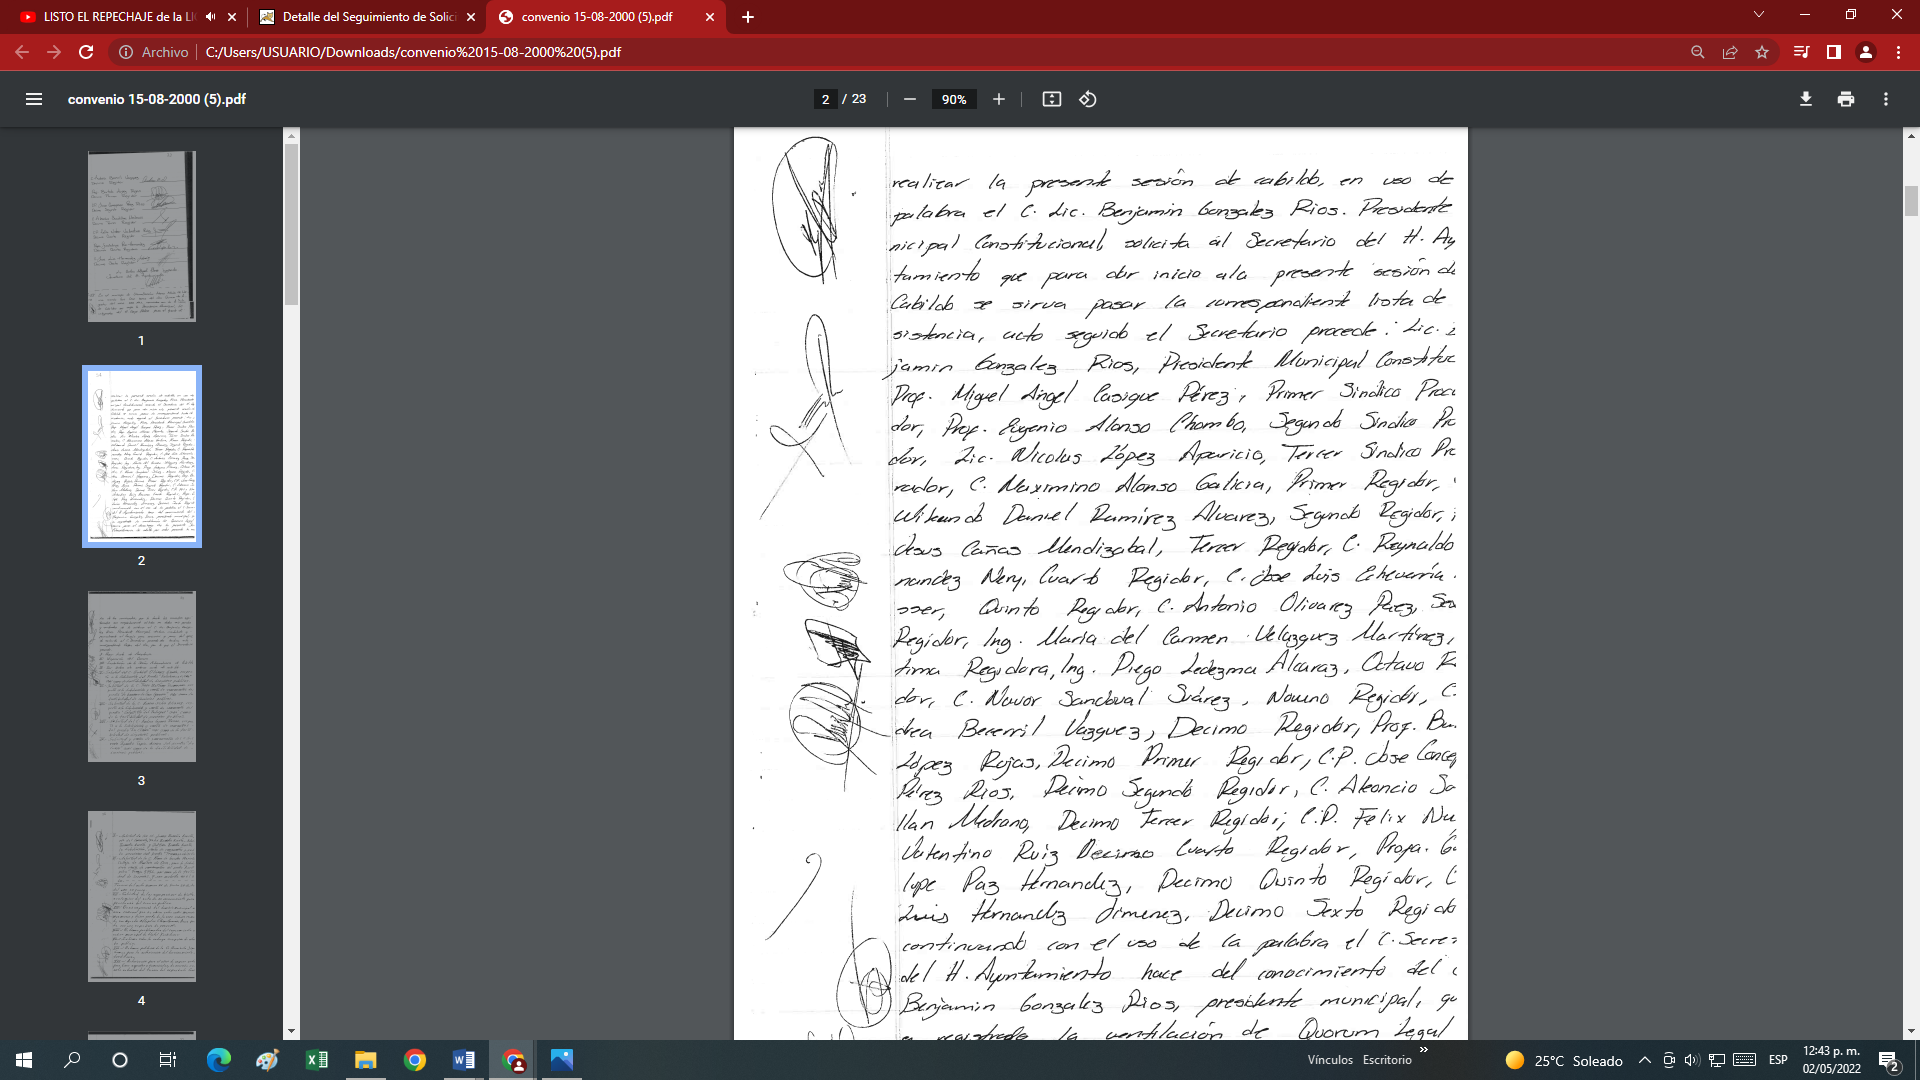 LISTO EL REPECHAJE de la LI
Detalle del Seguimiento de Solici
convenio 15-08-2000 (5).pdf
Archivo
C:/Users/USUARIO/Downloads/convenio%2015-08-2000%20(5).pdf
convenio 15-08-2000 (5).pdf
2 / 23
90%
1
2
3
4
realizar la presente sesión de cabildo, en uso de
palabra el C. Lic. Benjamin Gonzalez Rios. Presidente
nicipal Constitucional, solicita al Secretario del H. Ay
tamiento que para dar inicio a la presente sesión de
Cabildo se sirva pasar la correspondiente lista de
sistencia, acto seguido el Secretario procede: Lic.
jamin Gonzalez Rios, Presidente Municipal Constituc
Prof. Miguel Angel Casique Pérez, Primer Sindico Procu
dor, Prof. Eugenio Alonso Chombo, Segundo Sindico Pro
dor, Lic. Nicolas López Aparicio, Tercer Sindico Pro
rador, C. Maximino Alonso Galicia, Primer Regidor,
Daniel Ramírez Alvarez, Segundo Regidor,
Jesus Cañas Mendizabal, Tercer Regidor, C. Reynaldo
nandez Nery, Cuarto Regidor, C. Jose Luis Echeverría
sser, Quinto Regidor, C. Antonio Olivarez Paez, Sex
Regidor, Ing. Maria del Carmen Velazquez Martínez,
tima Regidora, Ing. Diego Ledezma Alcaraz, Octavo R
dor, C. Navor Sandoval Suárez, Noveno Regidor, C.
drea Becerril Vazquez, Decimo Regidor, Prof.
López Rojas, Decimo Primer Regidor, C.P. Jose Concep
Pérez Rios, Decimo Segundo Regidor, C. Sa
llan Medrano, Decimo Tercer Regidor, C.P. Felix
Valentino Ruiz Decimo Cuarto Regidor, Profa. Gu
lupe Paz Hernandez, Decimo Quinto Regidor, C
Luis Hernandez Jimenez, Decimo Sexto Regido
continuando con el uso de la palabra el C. Secre
del H. Ayuntamiento hace del conocimiento del
Benjamin Gonzalez Rios, presidente municipal, qu
registrada la ventilación de Quorum Legal
Vínculos
Escritorio
»
25°C Soleado
ESP
12:43 p. m.
02/05/2022
2